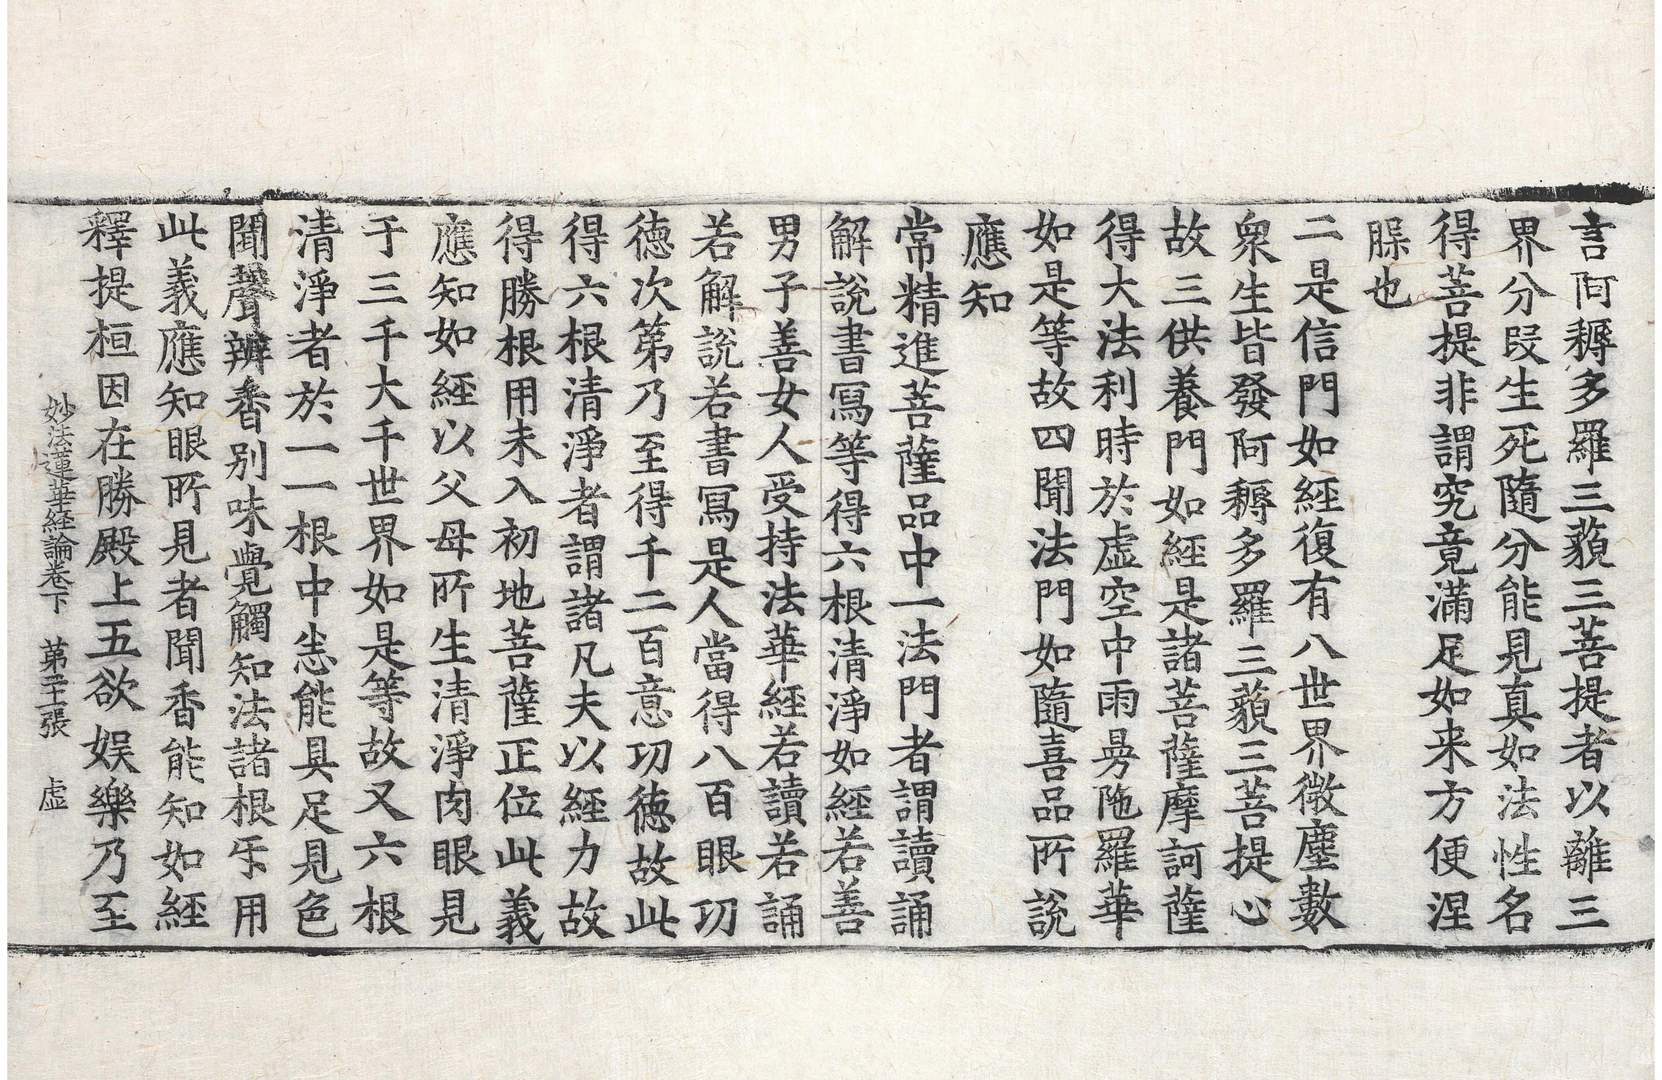 言阿耨多羅三藐三菩提者以離三
界分段生死隨分能見真如法性名
得菩提非謂究竟滿足如来方便涅
臊也
二是信門如經復有八世界微塵數
衆生皆發阿耨多羅三藐三菩提心
故三供養門如經是諸菩薩摩訶薩
得大法利時於虛空中雨曼陁羅華
如是等故四聞法門如隨喜品所說
應知
常精進菩薩品中一法門者謂讀誦
解說書寫等得六根清淨如經若善
男子善女人受持法華經若讀若誦
若解說若書寫是人當得八百眼功
德次第乃至得千二百意功德故此
得六根清淨者謂諸凡夫以經力故
得勝根用未入初地菩薩正位此義
應知如經以父母所生清淨肉眼見
于三千大千世界如是等故又六根
清淨者於一一根中悉能具足見色
聞聲辨香別味覺觸知法諸根乐用
此義應知眼所見者聞香能知如經
釋提桓因在勝殿上五欲娱樂乃至
妙法蓮華经論卷下 第二十張 虛